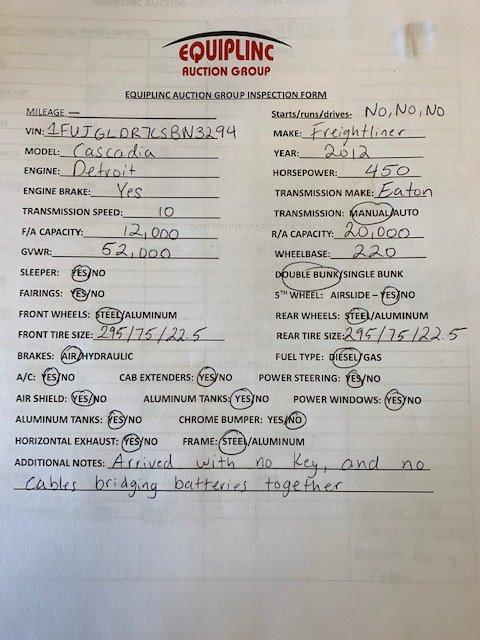 EQUIPLINC
AUCTION GROUP
EQUIPLINC AUCTION GROUP INSPECTION FORM
MILEAGE — Starts/runs/drives- No, No, No
VIN: 1FUJGLDR7CSBN3294 MAKE: Freightliner
MODEL: Cascadia YEAR: 2012
ENGINE: Detroit HORSEPOWER: 450
ENGINE BRAKE: Yes TRANSMISSION MAKE: Eaton
TRANSMISSION SPEED: 10 TRANSMISSION: MANUAL/AUTO
F/A CAPACITY: 12,000 R/A CAPACITY: 20,000
GVWR: 52,000 WHEELBASE: 220
SLEEPER: YES/NO DOUBLE BUNK/SINGLE BUNK
FAIRINGS: YES/NO 5TH WHEEL: AIRSLIDE – YES/NO
FRONT WHEELS: STEEL/ALUMINUM REAR WHEELS: STEEL/ALUMINUM
FRONT TIRE SIZE: 295/75/22.5 REAR TIRE SIZE: 295/75/22.5
BRAKES: AIR/HYDRAULIC FUEL TYPE: DIESEL/GAS
A/C: YES/NO CAB EXTENDERS: YES/NO POWER STEERING: YES/NO
AIR SHIELD: YES/NO ALUMINUM TANKS: YES/NO POWER WINDOWS: YES/NO
ALUMINUM TANKS: YES/NO CHROME BUMPER: YES/NO
HORIZONTAL EXHAUST: YES/NO FRAME: STEEL/ALUMINUM
ADDITIONAL NOTES: Arrived with no key, and no
cables bridging batteries together